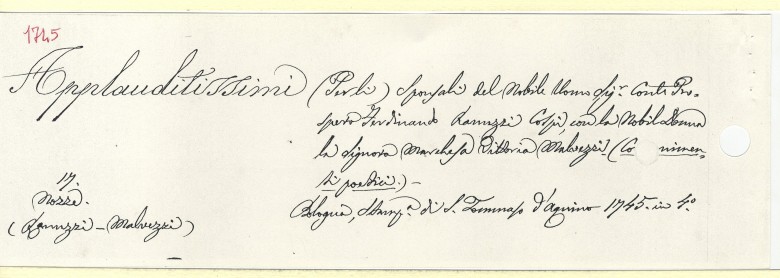 1745
Applauditissimi (Per li) Sponsali del Nobile Uomo Sig.r Conte Pro-
spero Ferdinando Ranuzzi Cospi, con la Nobil Donna
la Signora Marchesa Vittoria Malvezzi (Co nimen-
ti poetici.) –
17.
Nozze.
(Ranuzzi – Malvezzi)
Bologna, Stamp.a di S. Tommaso d'Aquino 1745. in 4.o